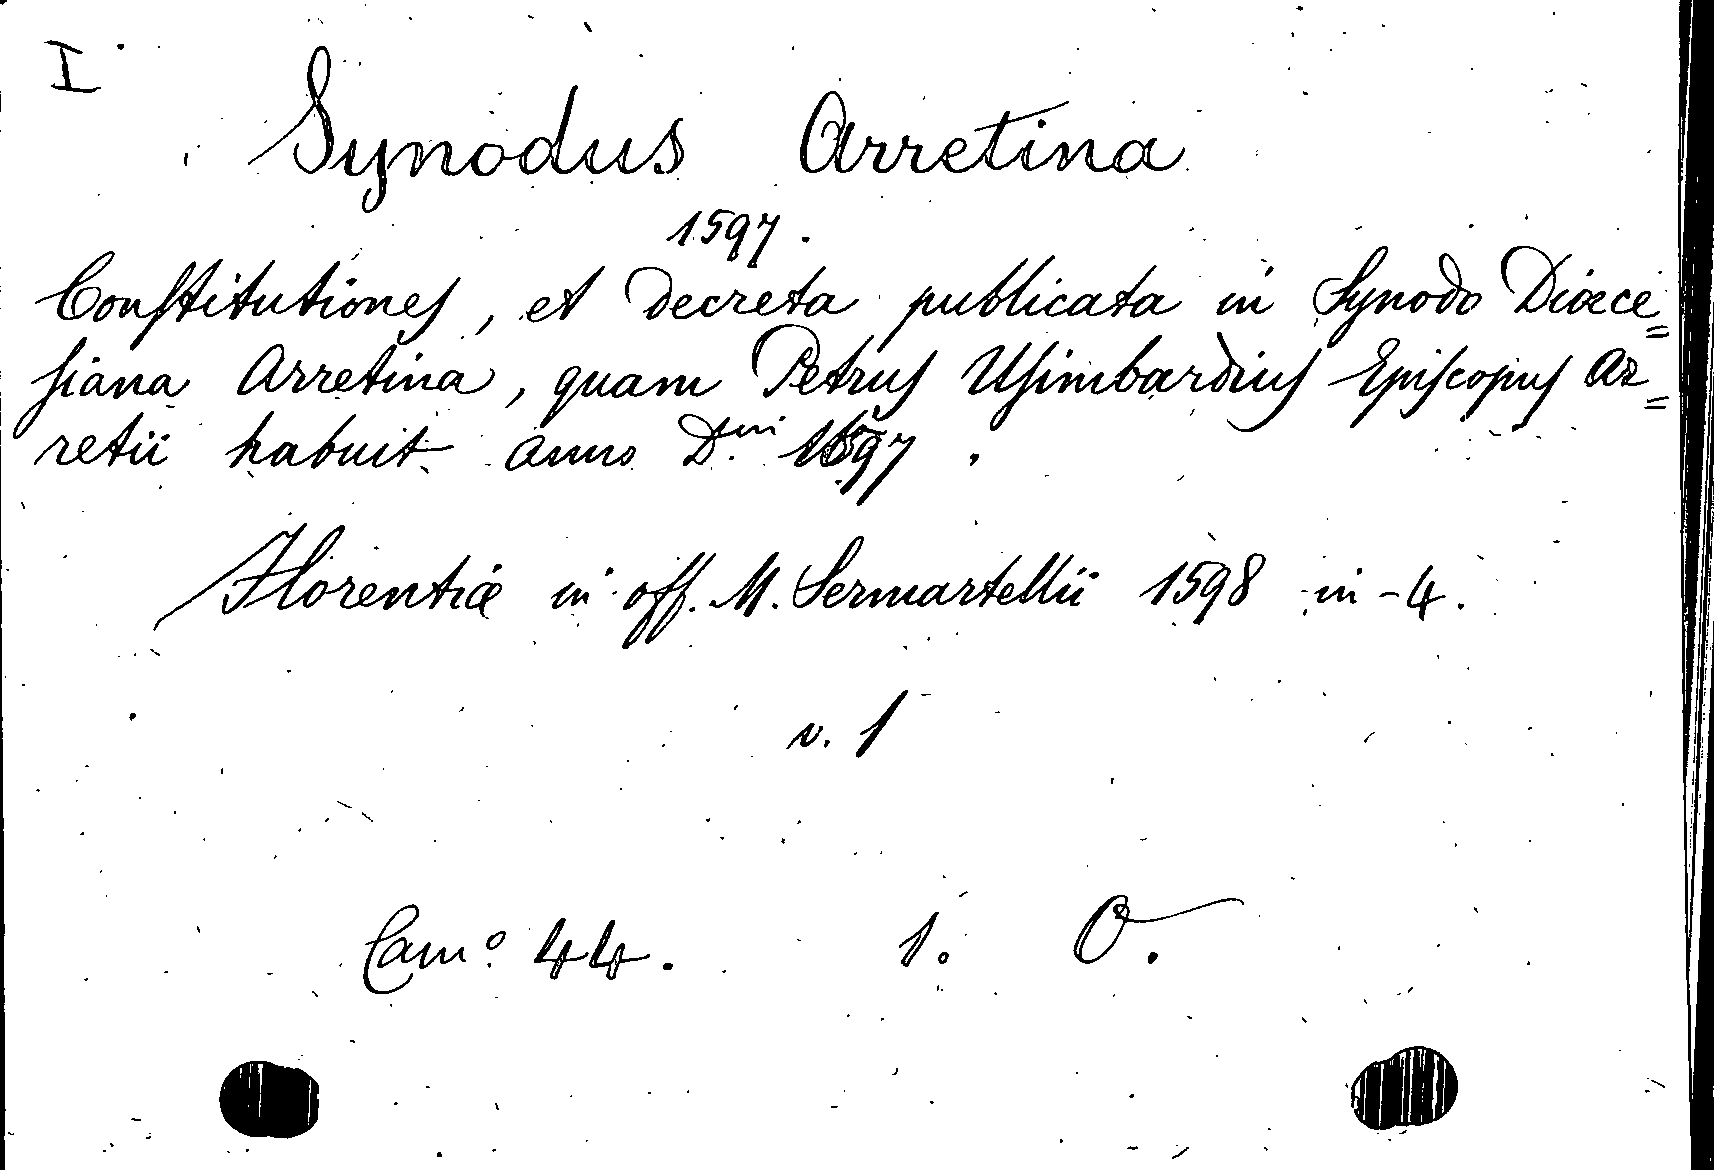 I
Synodus Arretina
1597.
Conſtitutioneſ, et decreta publicata in Synodo Diœce=
ſiana Arretina, quam Petruſ Uſimbardiuſ Epiſcopuſ Ar=
retii habuit anno Dni. 1597.
Florentiæ in off. M. Sermartellii 1598 in-4.
v. 1
Camo. 44. 1. O.